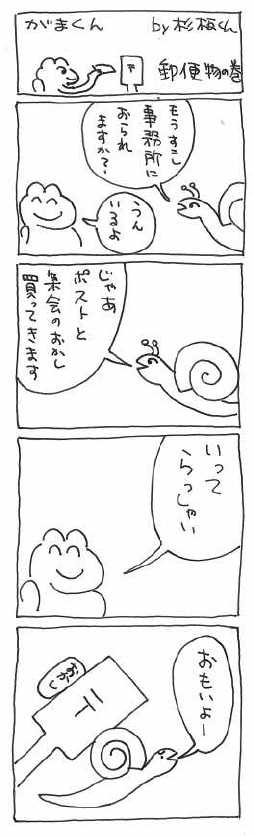 がまくん
by 杉板くん
郵便物の巻
〒
もうすこし
事務所に
おられ
ますか？
うん
いるよ
じゃあ
ポストと
集会のおかし
買ってきます
いって
らっしゃい
おもいよー
おかし
〒